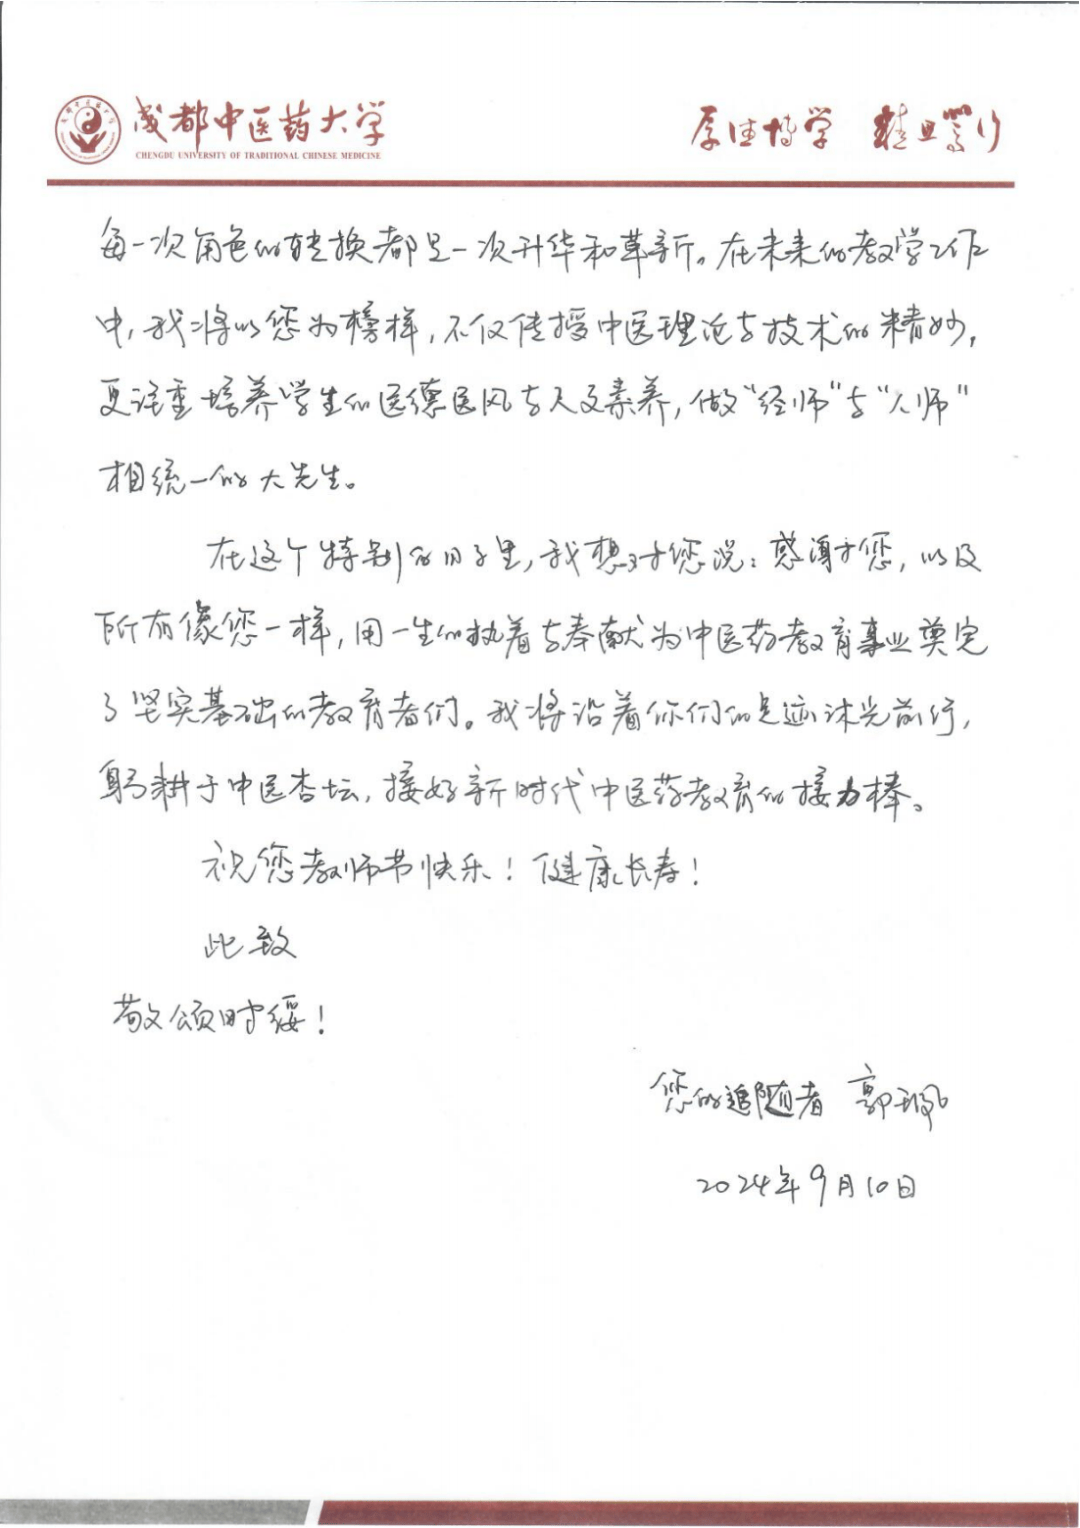 成都中医药大学
CHENGDU UNIVERSITY OF TRADITIONAL CHINESE MEDICINE
厚德博学 精思笃行
每一次角色的转换都是一次升华和革新。在未来的教学工作
中,我将以您为榜样,不仅传授中医理论与技术的精妙,
更注重培养学生的医德医风与人文素养,做“经师”与“人师”
相统一的大先生。
在这个特别的日子里,我想对您说:感谢您,以及
所有像您一样,用一生的执着与奉献为中医药教育事业奠定
了坚实基础的教育者们。我将沿着你们的足迹沐光前行,
躬耕于中医杏坛,接好新时代中医药教育的接力棒。
祝您教师节快乐!健康长寿!
此致
敬颂时绥!
您的追随者 郭珮
2024年9月10日